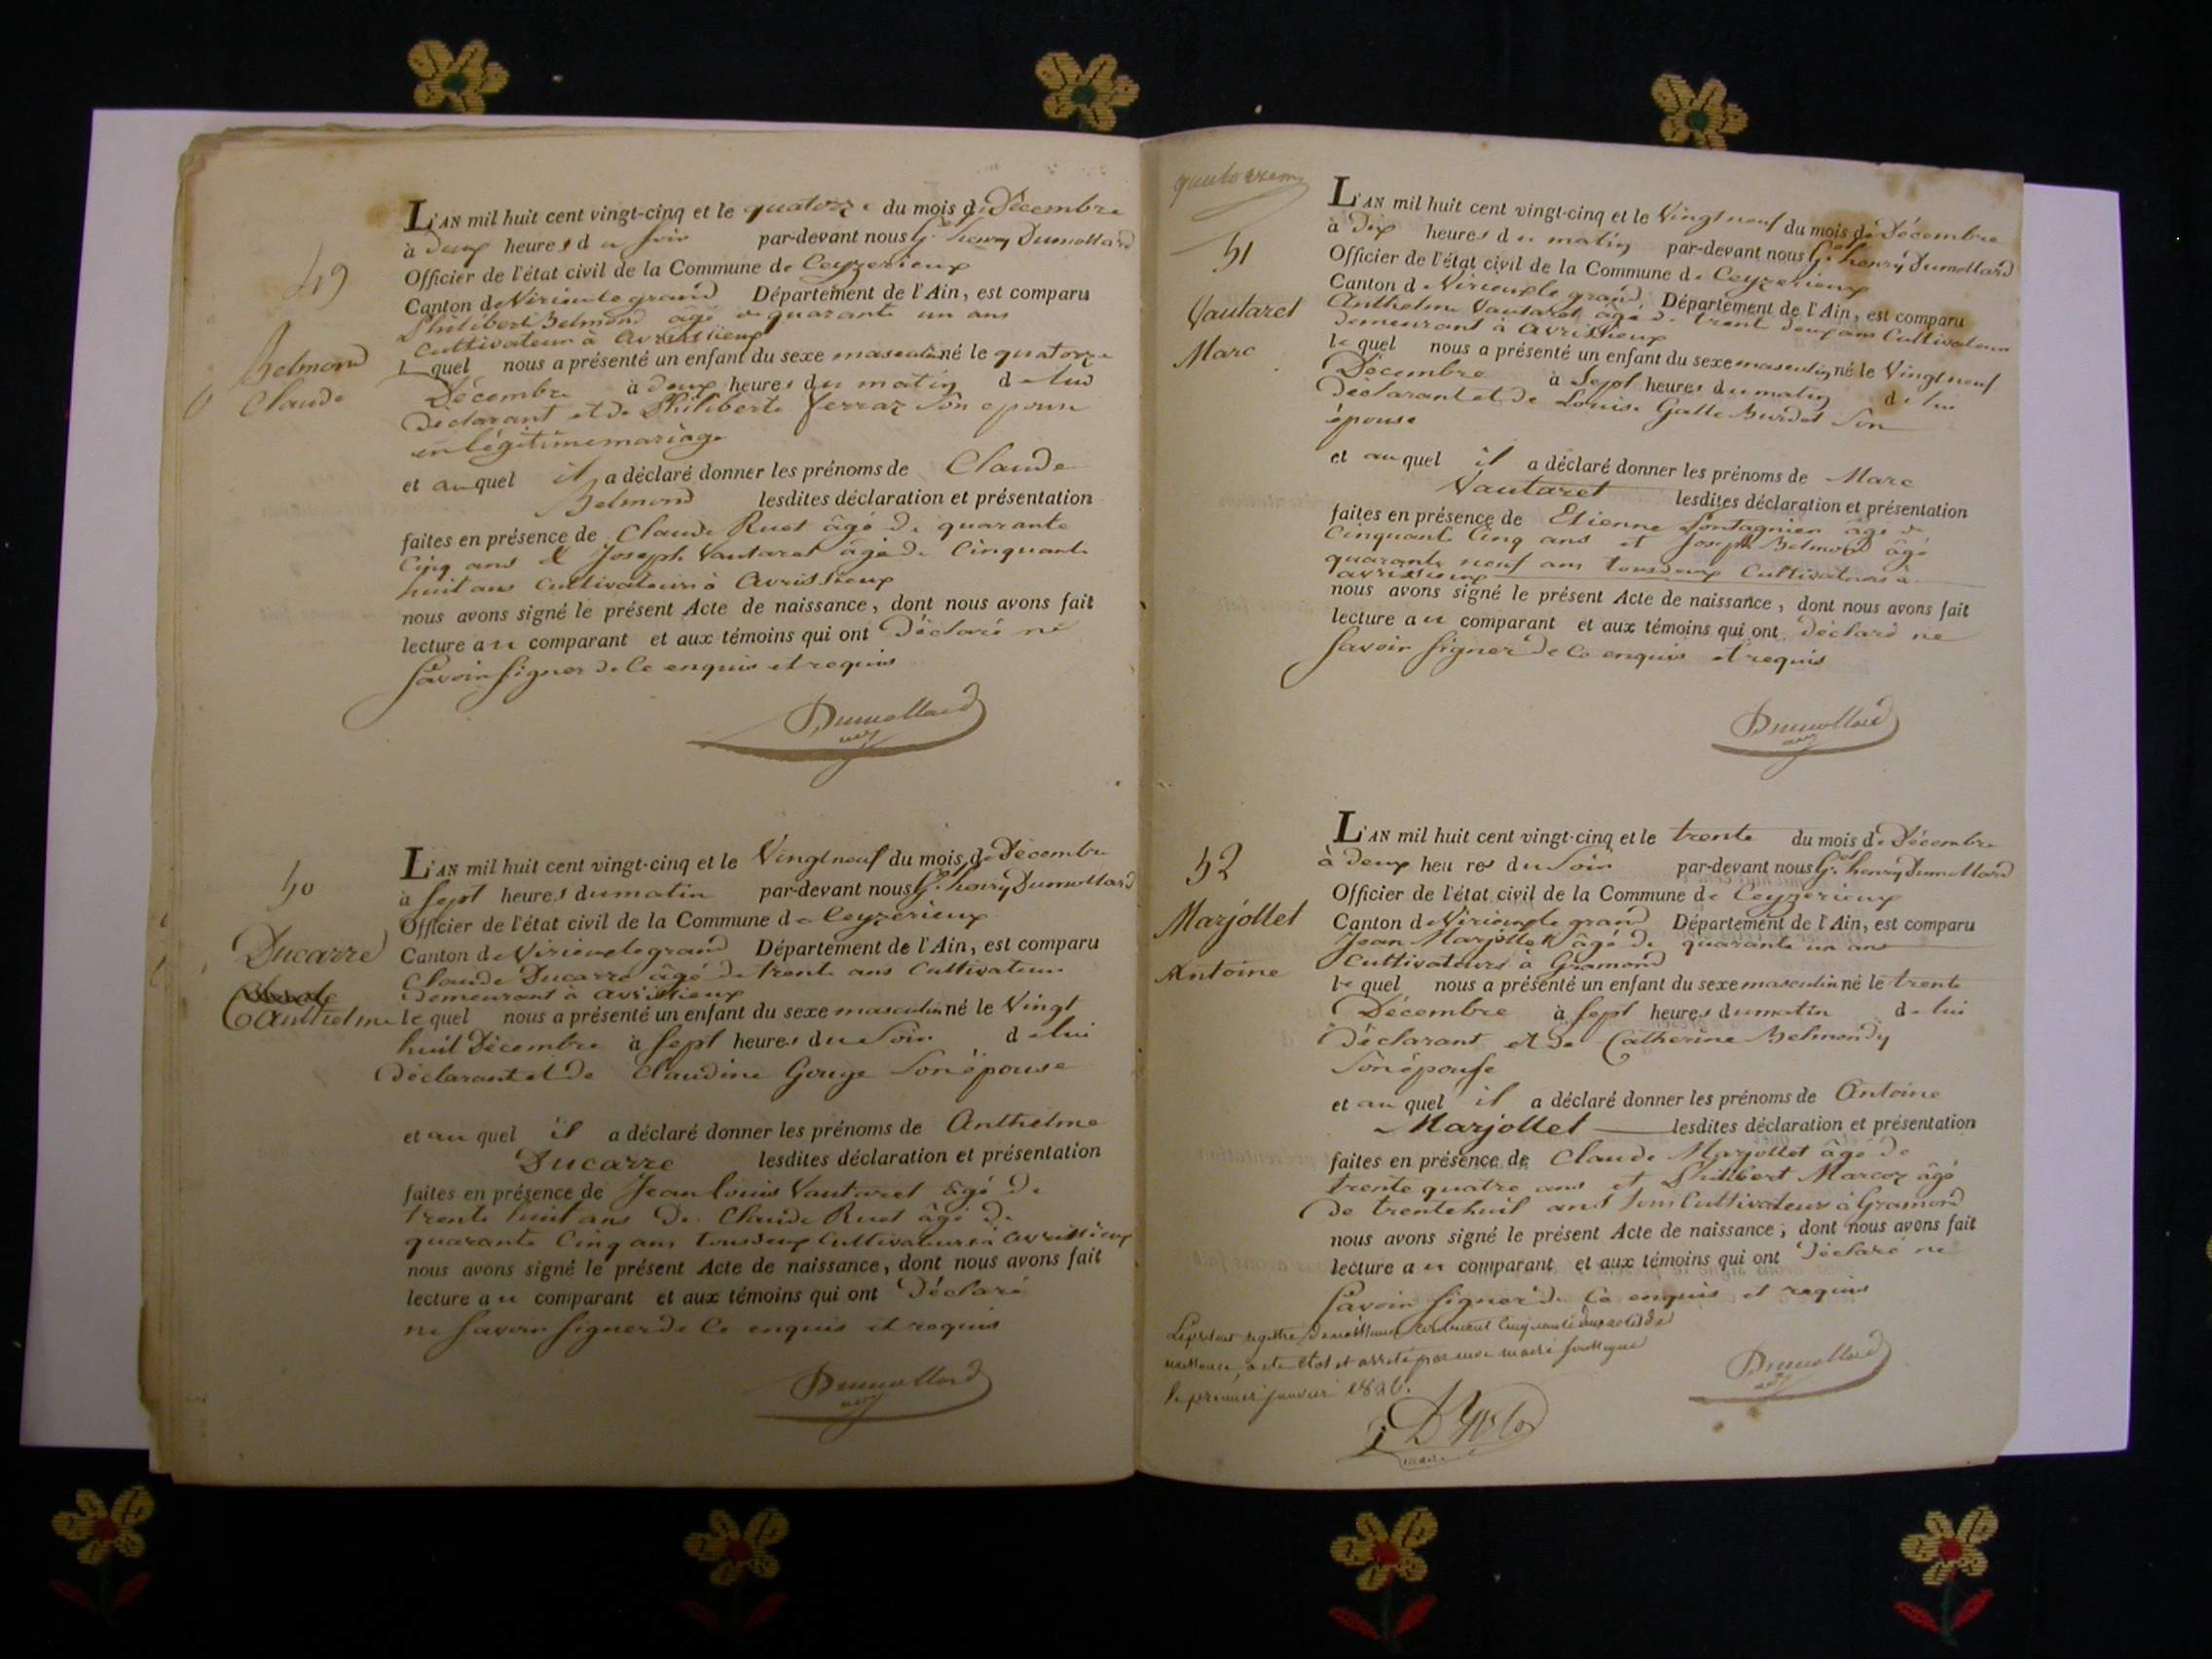 49
Belmond
Claude
L'AN mil huit cent vingt-cinq et le quatorze du mois de Décembre
à deux heures du soir par-devant nous henry Dumollard
Officier de l'état civil de la Commune de Ceyzerieux
Canton de Virieu le grand Département de l'Ain, est comparu
Philibert Belmond âgé de quarante un ans
Cultivateur à Avrissieux
le quel nous a présenté un enfant du sexe masculin né le quatorze
Décembre à deux heures du matin de lui
Déclarant et de Philiberte ferraz Son epouse
en légitime mariage
et auquel il a déclaré donner les prénoms de Claude
Belmond lesdites déclaration et présentation
faites en présence de Claude Ruet âgé de quarante
Cinq ans & Joseph Vautaret âgé de Cinquante
huit ans Cultivateurs à Avrissieux
nous avons signé le présent Acte de naissance, dont nous avons fait
lecture au comparant et aux témoins qui ont Déclaré ne
Savoir Signer de Ce enquis et requis
Dumollard
50
Ducarre
Anthelme
L'AN mil huit cent vingt-cinq et le Vingt neuf du mois de Décembre
à Sept heures du matin par-devant nous henry Dumollard
Officier de l'état civil de la Commune de Ceyzerieux
Canton de Virieu le grand Département de l'Ain, est comparu
Claude Ducarre âgé de trente ans Cultivateur
Demeurant à avrissieux
le quel nous a présenté un enfant du sexe masculin né le Vingt
huit Décembre à Sept heures du Soir de lui
Déclarant et de Claudine Gouge Son épouse
et au quel il a déclaré donner les prénoms de Anthelme
Ducarre lesdites déclaration et présentation
faites en présence de Jean Louis Vautaret âgé de
trente huit ans De Claude Ruet âgé de
quarante Cinq ans tous deux Cultivateurs à avrissieux
nous avons signé le présent Acte de naissance, dont nous avons fait
lecture au comparant et aux témoins qui ont Déclaré
ne Savoir Signer de Ce enquis et requis
Dumollard
51
Vautaret
Marc
L'AN mil huit cent vingt-cinq et le Vingt neuf du mois de Décembre
à Dix heures du matin par-devant nous henry Dumollard
Officier de l'état civil de la Commune de Ceyzerieux
Canton d Virieux le grand Département de l'Ain, est comparu
Anthelme Vautaret âgé de trente deux ans Cultivateur
Demeurant à Avrissieux
le quel nous a présenté un enfant du sexe masculin né le Vingt neuf
Décembre à Sept heures du matin de lui
Déclarant et de Louise Galle Burdet Son
épouse
et au quel il a déclaré donner les prénoms de Marc
Vautaret lesdites déclaration et présentation
faites en présence de Etienne Pontagnier âgé de
Cinquante Cinq ans et Joseph Belmond âgé
quarante neuf ans tous deux Cultivateurs à
avrissieux
nous avons signé le présent Acte de naissance, dont nous avons fait
lecture au comparant et aux témoins qui ont déclaré ne
Savoir Signer de Ce enquis et requis
Dumollard
52
Marjollet
Antoine
L'AN mil huit cent vingt-cinq et le trente du mois de Décembre
à deux heures du Soir par-devant nous henry Dumollard
Officier de l'état civil de la Commune de Ceyzerieux
Canton de Virieux le grand Département de l'Ain, est comparu
Jean Marjollet âgé de quarante un ans
Cultivateurs à Gramond
le quel nous a présenté un enfant du sexe masculin né le trente
Décembre à Sept heures du matin de lui
Déclarant et de Catherine Belmondy
Son épouse
et au quel il a déclaré donner les prénoms de Antoine
Marjollet lesdites déclaration et présentation
faites en présence de Claude Marjollet âgé de
trente quatre ans et Philibert Marcoz âgé
De trente huit ans tous Cultivateurs à Gramond
nous avons signé le présent Acte de naissance, dont nous avons fait
lecture au comparant et aux témoins qui ont Déclaré ne
Savoir Signer de Ce enquis et requis
Dumollard
Le présent registre De naissance contenant Cinquante deux actes de
naissance, a été Clos et arrêté par nous maire soussigné
le premier janvier 1826.